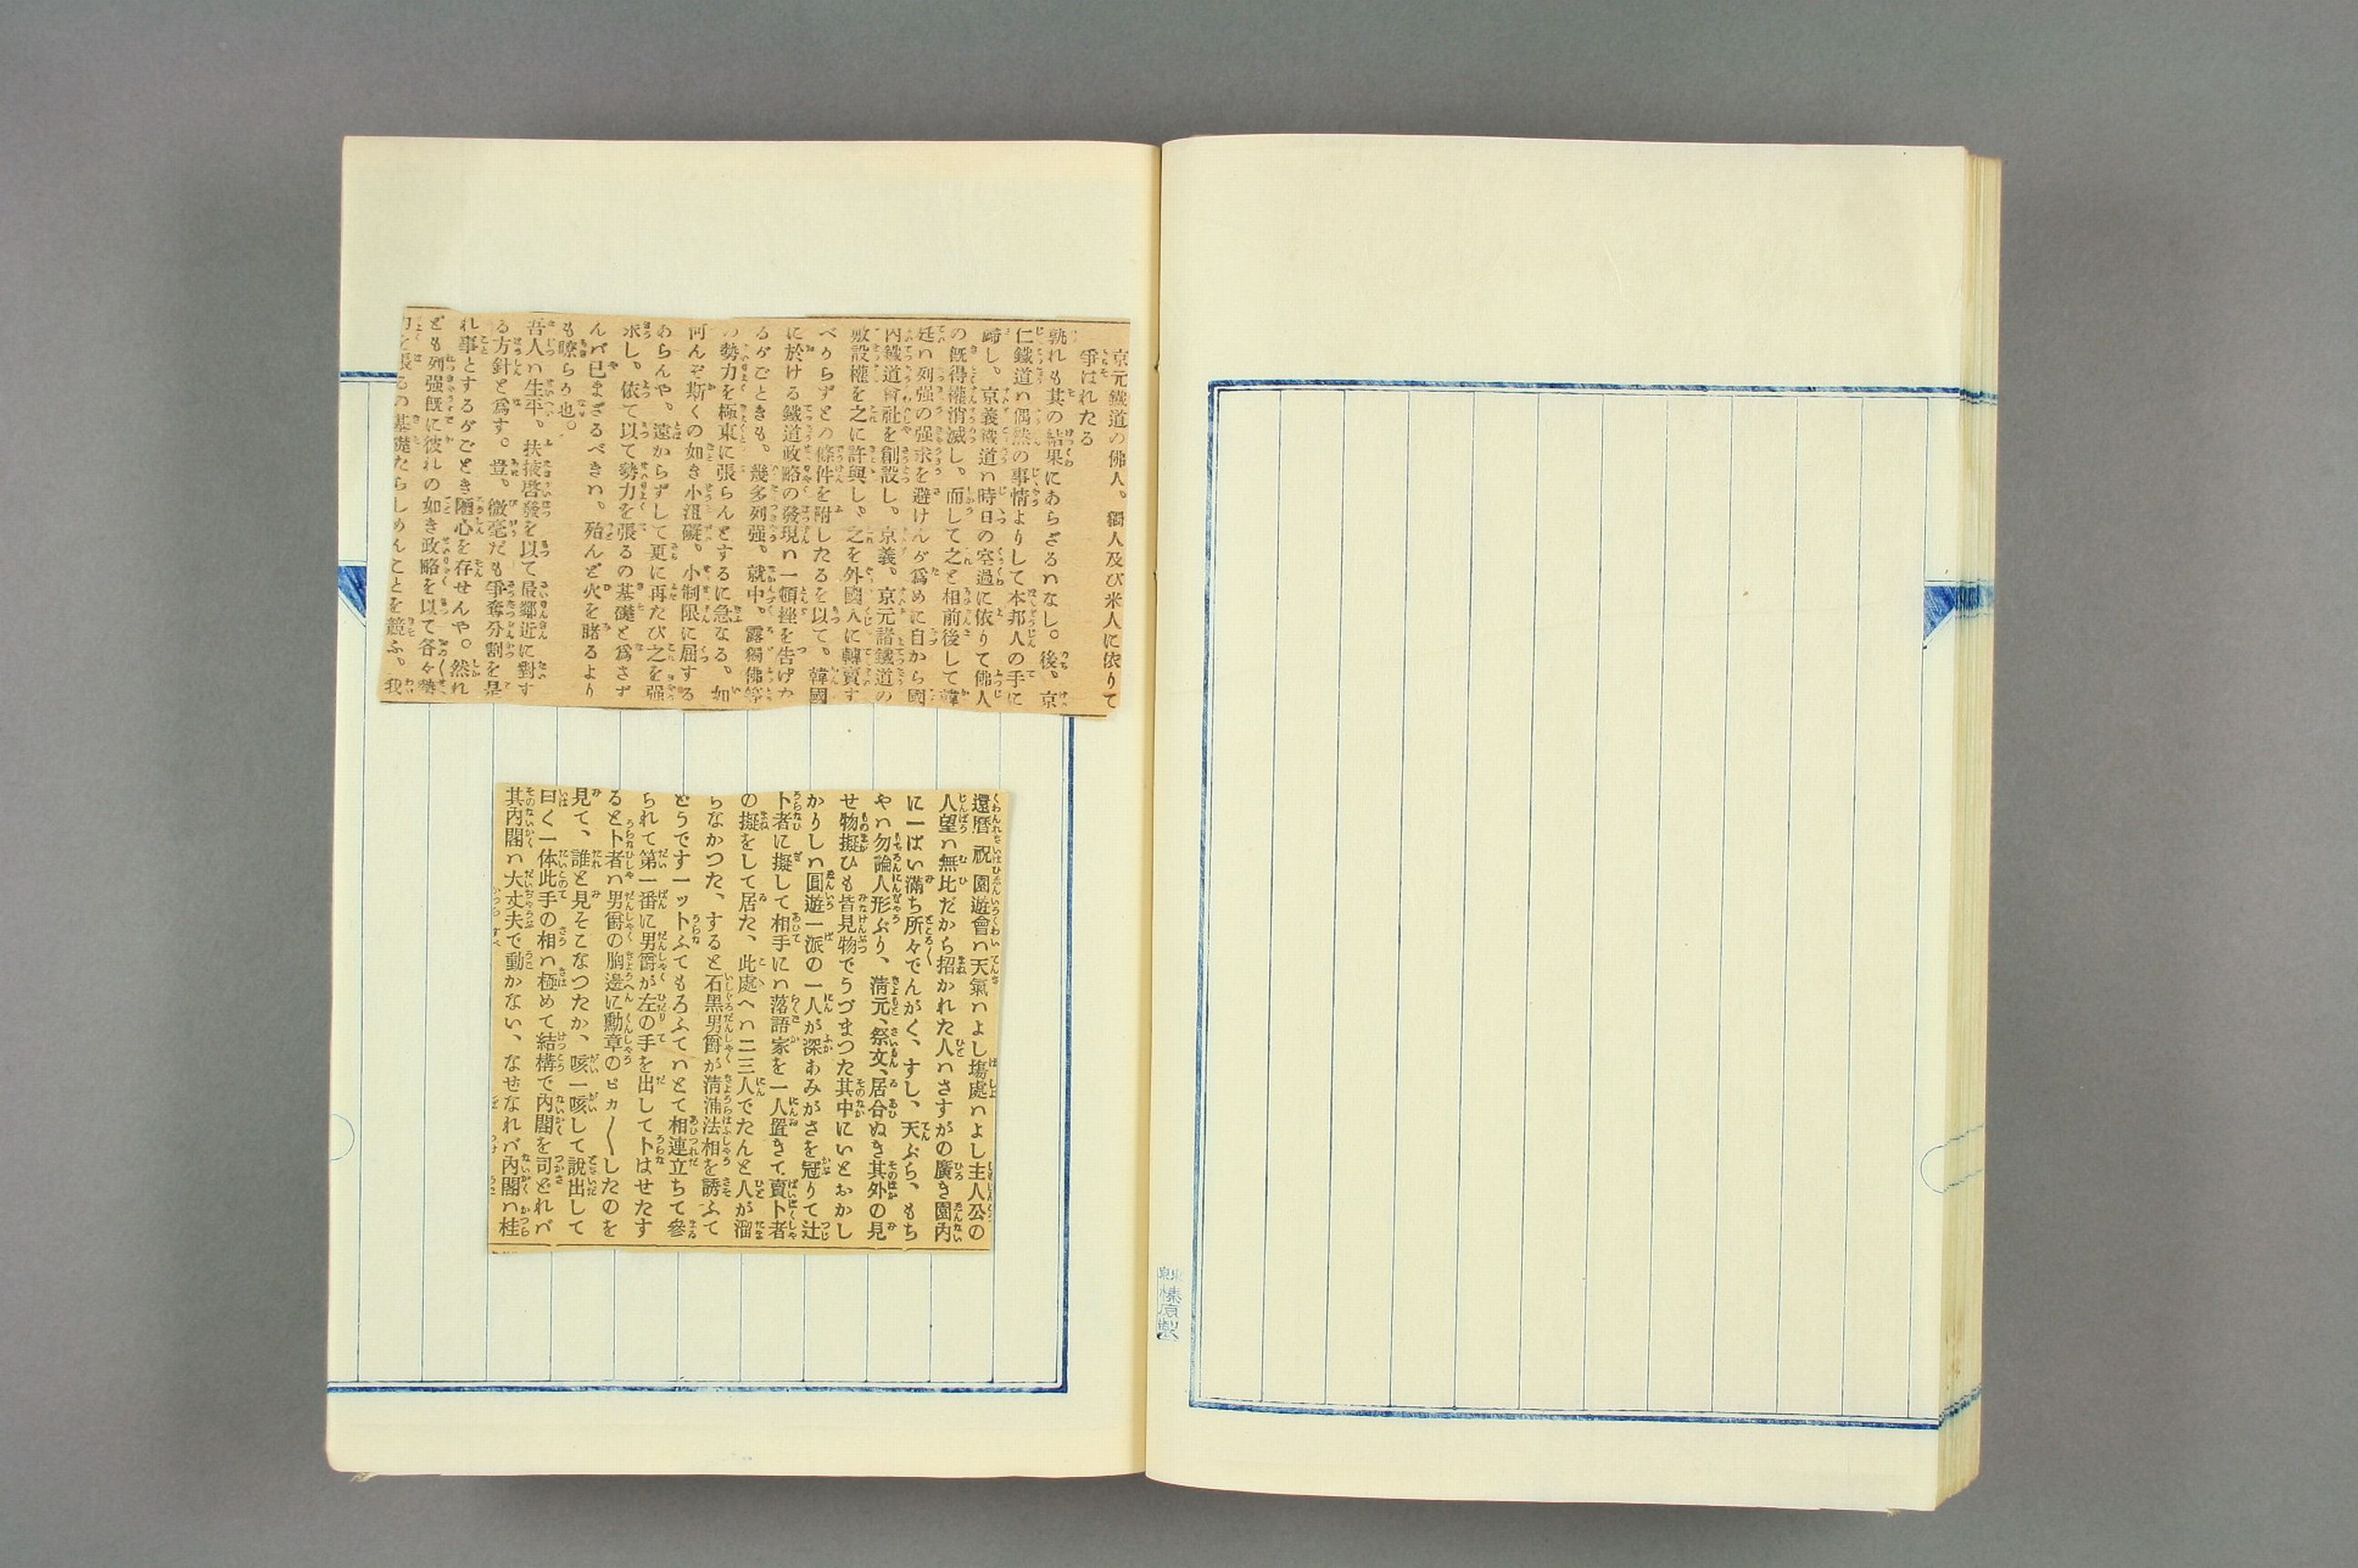 京元鐵道の佛人。獨人及び米人に依りて
爭はれたる
孰れも其の結果にあらざるハなし。後。京
仁鐵道ハ偶然の事情よりして本邦人の手に
歸し。京義鐵道ハ時日の空過に依りて佛人
の既得權消滅し。而して之と相前後して韓
廷ハ列强の强求を避けんが爲めに自から國
內鐵道會社を創設し。京義。京元諸鐵道の
敷設權を之に許與し。之を外國人に轉賣す
べからずとの條件を附したるを以て。韓國
に於ける鐵道政略の發現ハ一頓挫を告げた
るがごときも。幾多列强。就中。露獨佛等
の勢力を極東に張らんとするに急なる。如
何んぞ斯くの如き小沮礙。小制限に屈する
あらんや。遠からずして更に再たび之を强
求し。依て以て勢力を張るの基礎と爲さず
んバ已まざるべきハ。殆んど火を睹るより
も瞭らか也。
吾人ハ生平。扶掖啓發を以て最鄰近に對す
る方針と爲す。豈。微毫だも爭奪分割を是
れ事とするがごとき陋心を存せんや。然れ
ども列强既に彼れの如き政略を以て各々勢
力を張るの基礎たらしめんことを競ふ。我
還曆祝園遊會ハ天氣ハよし塲處ハよし主人公の
人望ハ無比だから招かれた人ハさすがの廣き園內
に一ぱい滿ち所々でんがく、すし、天ぷら、もち
やハ勿論人形ぶり、淸元、祭文、居合ぬき其外の見
せ物擬ひも皆見物でうづまつた其中にいとおかし
かりしハ圓遊一派の一人が深あみがさを冠りて辻
卜者に擬して相手にハ落語家を一人置きて賣卜者
の擬をして居た、此處へハ二三人でたんと人が溜
らなかつた、すると石黑男爵が淸浦法相を誘ふて
どうです一ツトふてもろふてハとて相連立ちて參
られて第一番に男爵が左の手を出して卜はせたす
ると卜者ハ男爵の胸邊に勳章のピカ〳〵したのを
見て、誰と見そこなつたか、咳一咳して說出して
曰く一体此手の相ハ極めて結構で內閣を司どれバ
其內閣ハ大丈夫で動かない、なせなれバ內閣ハ桂